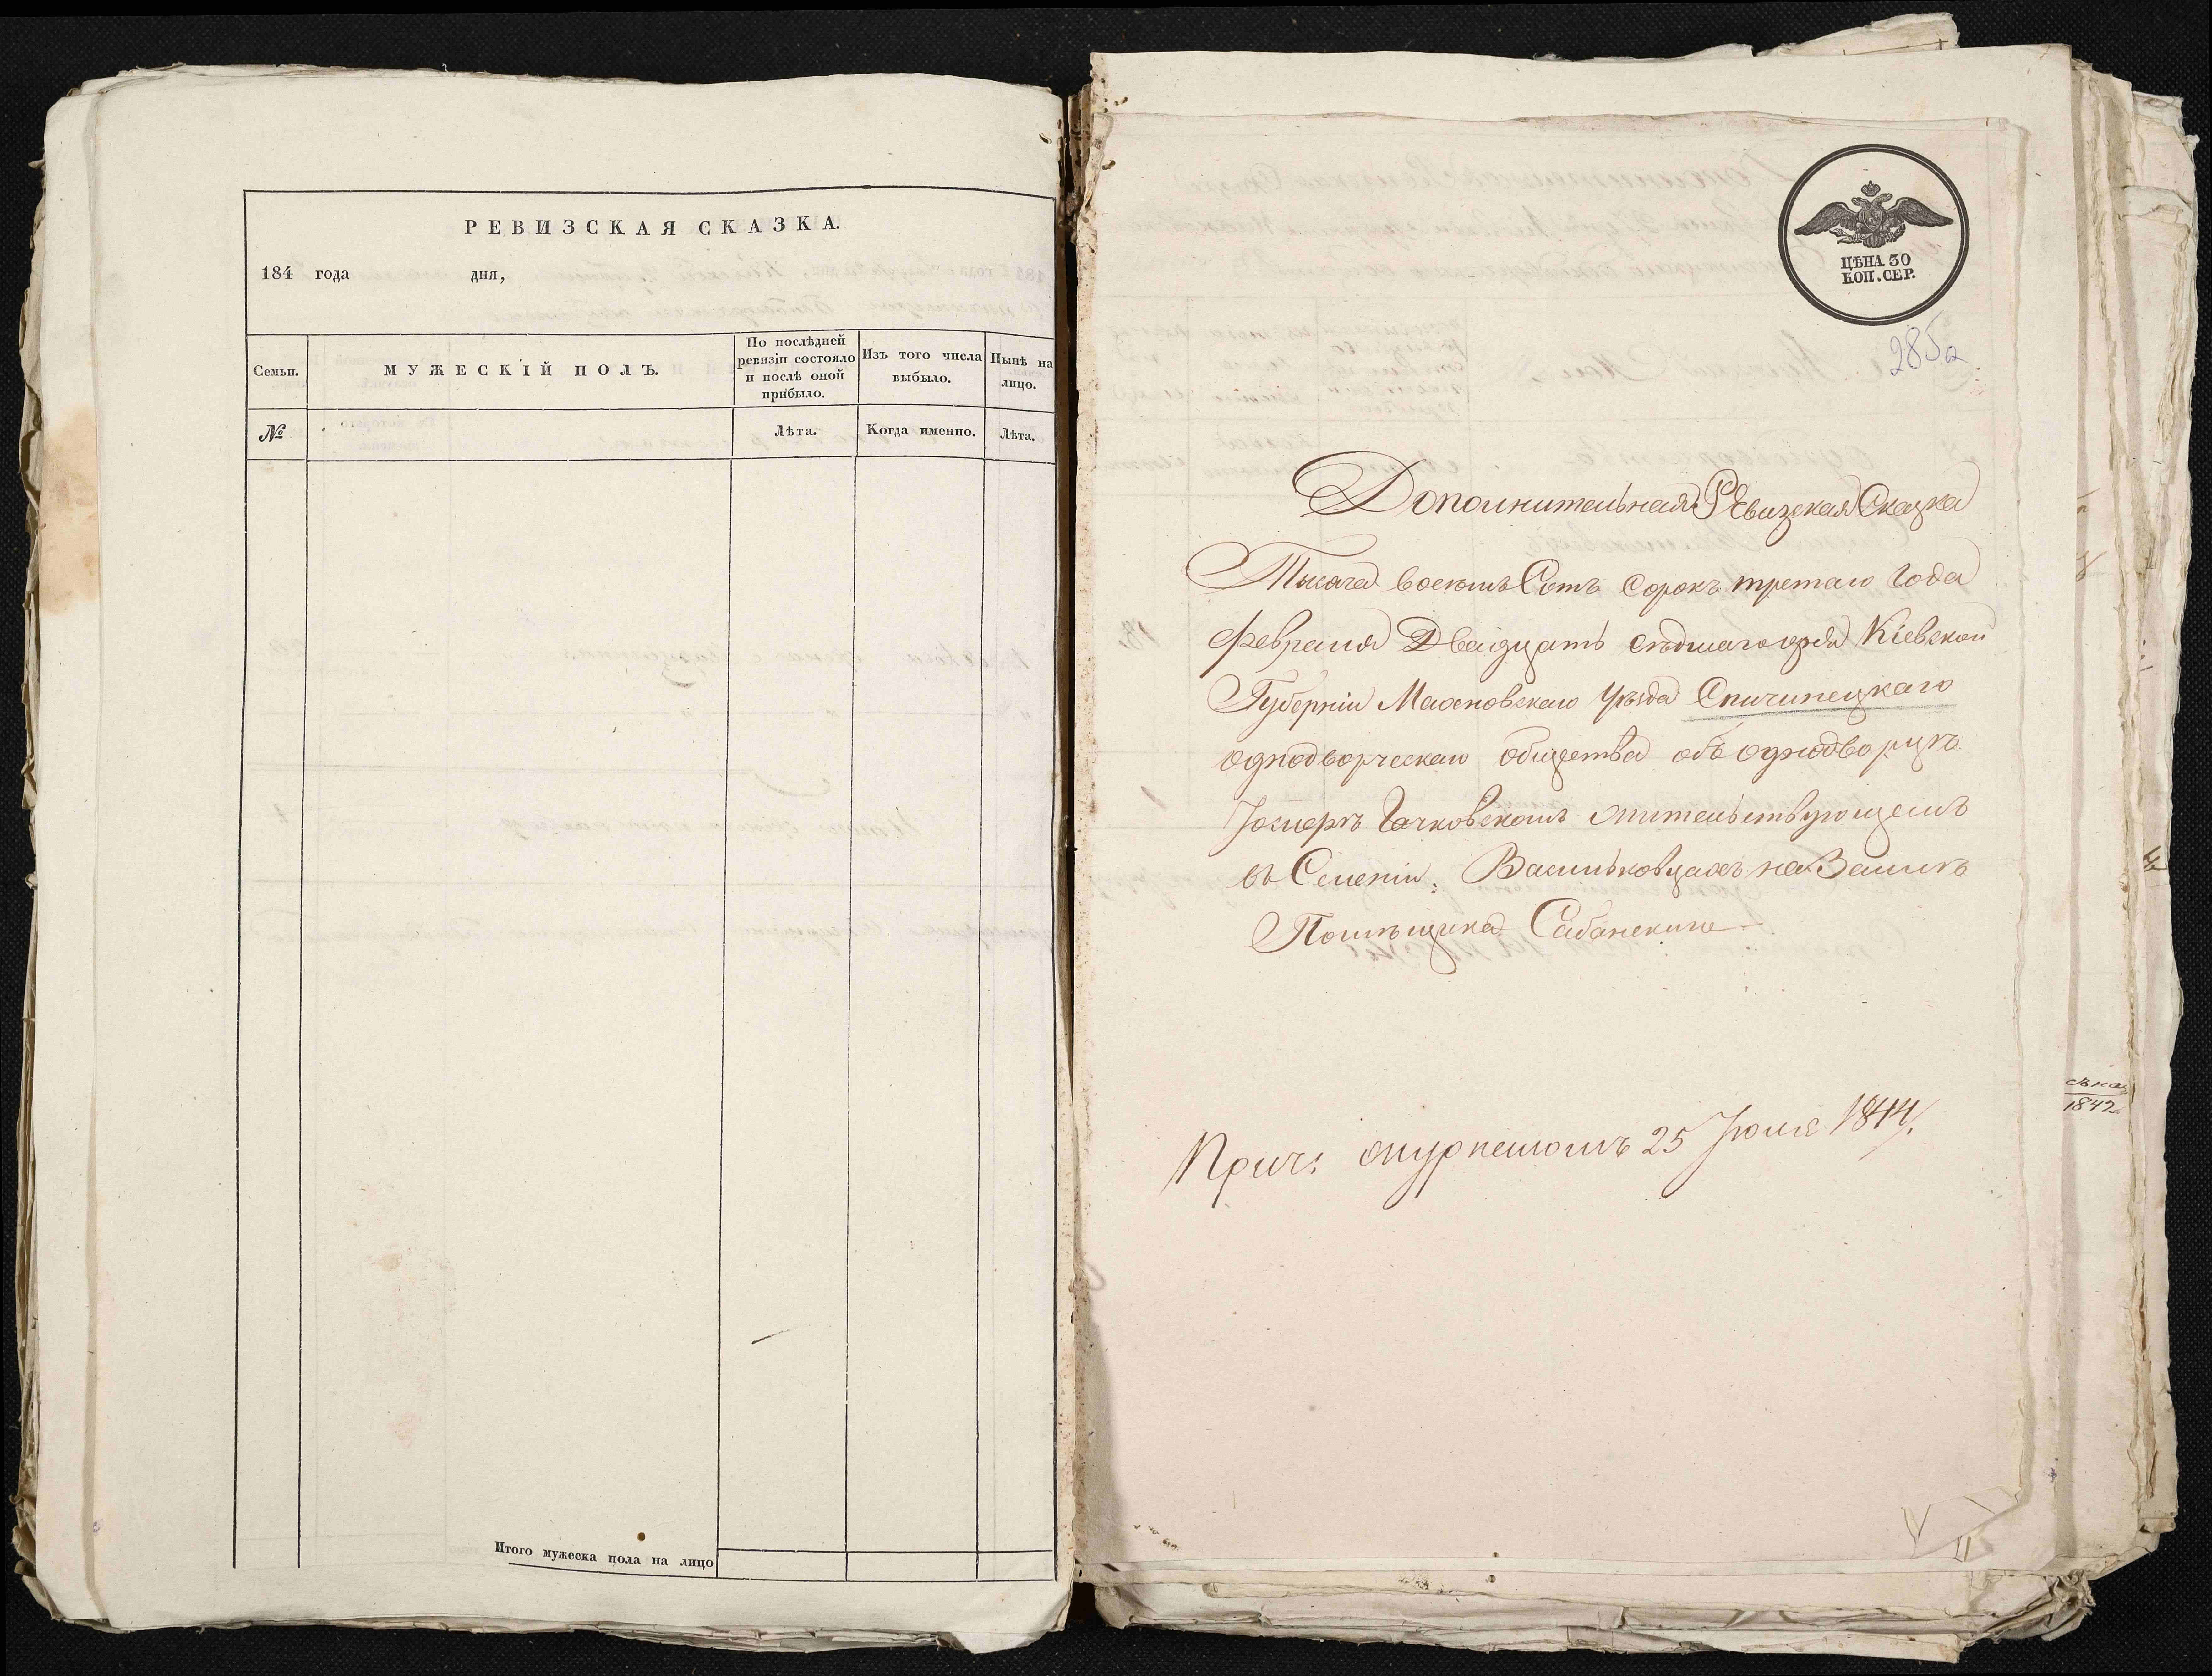 РЕВИЗСКАЯ СКАЗКА.
184 года дня,
Семьи.
МУЖЕСКІЙ ПОЛЪ.
По послѣдней
ревизіи состояло
и послѣ оной
прибыло.
Изъ того числа
выбыло.
Нынѣ на
лицо.
№
Лѣта.
Когда именно.
Лѣта.
Итого мужеска пола на лицо
ЦѢНА 30
КОП. СЕР.
285а
Дополнительная Ревизская Сказка
Тысяча восемь Сотъ сорокъ третаго года
февраля Двадцать седмаго дня Кіевской
Губерніи Махновскаго уѣзда Спичинецкаго
однодворческаго общества объ однодворцѣ
Гачковскомъ жительствующемъ
въ Селеніи: Васильковцахъ на Землѣ
Помѣщика Сабанскаго
Прич: журналомъ 25 Іюля 1844.
1842